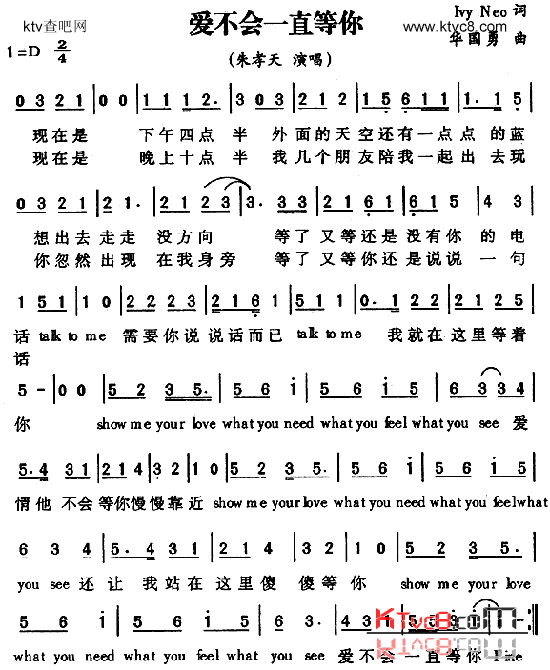 ktv查吧网
www.ktyc8.com
爱不会一直等你
Ivy Neo 词
华国勇 曲
1=D 2/4
(朱孝天 演唱)
0 3 2 1 | 0 0 | 1 1 1 2. | 3 0 0 3 | 2 1 2. | 1 5 6 1 1 | 1. 1 5 |
现在是 下午四点 半 外面的天空还有一点点 的蓝
现在是 晚上十点 半 我几个朋友陪我一起出 去玩
0 3 2 1 | 2 1. | 2 1 2 3 | 3. 3 3 | 2 1 6 1 | 1 6 6 1 | 6 1 5 4 3 |
想出去走走 没方向 等了又等还是没有你 的电
你忽然出现 在我身旁 等了又等你还是说说 一句
1 5 1 | 1 0 | 2 2 2 3 | 2 2 2 3 | 2 1 6 1 | 5 1 1 | 0. 1 2 2 | 2 2 2 1 |
话 talk to me 需要你说说话而已 talk to me 我就在这里等着
话
5 - | 0 0 | 5 2 3 5. | 5 6 i | 5 6 i | 5 6 i | 6 3 3 3 |
你 show me your love what you need what you feel what you see 爱
5. 4 3 1 | 2 1 4 | 3 2 1 2 | 1 0 | 5 2 3 5. | 5 6 i | 5 6 i |
情他 不会 等你慢慢靠近 show me your love what you need what you feel what
5 6 i | 6 3 | 5. 4 3 1 | 2 1 4 | 5 1 2 | 1 0 | 5 2 3 5. |
you see 还让 我站在这里傻 傻等你 show me your love
5 6 i | 5 6 i | 5 6 i | 6 3. |
what you need what you feel what you see 爱不会一直等你
KTvc8.com